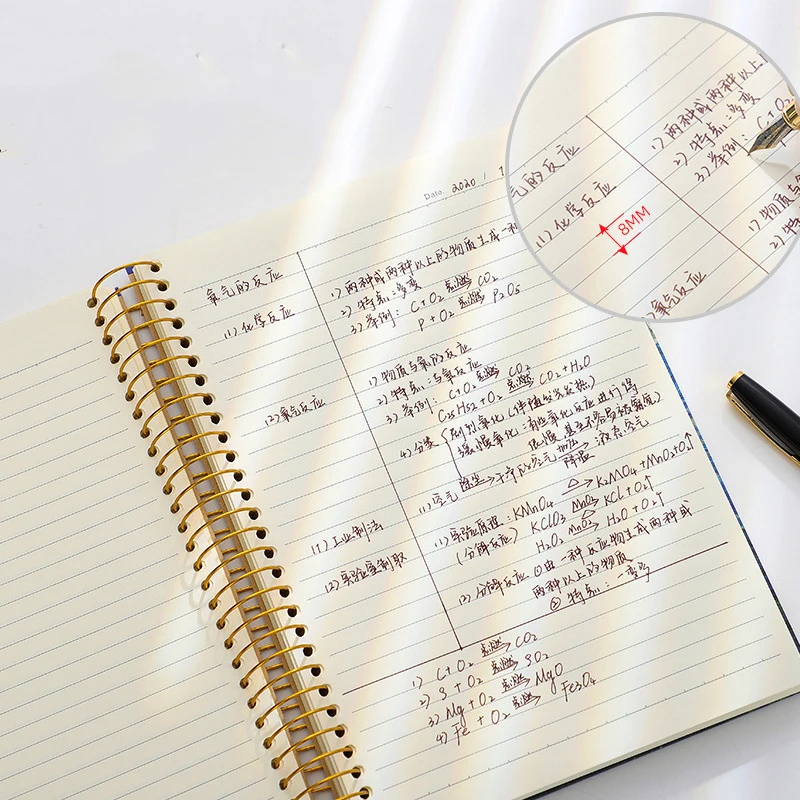 Date. 2020 / 1
氧气的反应
(1) 化学反应
1) 两种或两种以上的物质生成一种
2) 特点: 多变
3) 举例: C+O2 点燃→ CO2
P+O2 点燃→ P2O5
(2) 氧气反应
1) 物质与氧的反应
2) 特点: 与氧反应
3) 举例: C+O2 点燃→ CO2
C25H52+O2 点燃→ CO2+H2O
4) 分类 { 剧烈氧化 (伴随发光发热)
缓慢氧化: 有些氧化反应进行得
很慢 甚至不容易被察觉)
(1) 工业制法
(1) 空气 除尘→ 干净的空气 加压→降温 液态空气
(2) 实验室制取
(1) 实验原理: KMnO4 △→ K2MnO4+MnO2+O2↑
(分解反应) KClO3 MnO2→△ KCl+O2↑
H2O2 MnO2→ H2O+O2↑
(2) 分解反应 ①由一种反应物生成两种或
两种以上的物质
② 特点: 一变多
1) C+O2 点燃→ CO2
2) S+O2 点燃→ SO2
3) Mg+O2 点燃→ MgO
4) Fe+O2 点燃→ Fe3O4
气的反应
(1) 化学反应
8MM
1) 两种或两种以上
2) 特点: 多变
3) 举例: C+O2
1) 物质与
2) 特
氧气反应